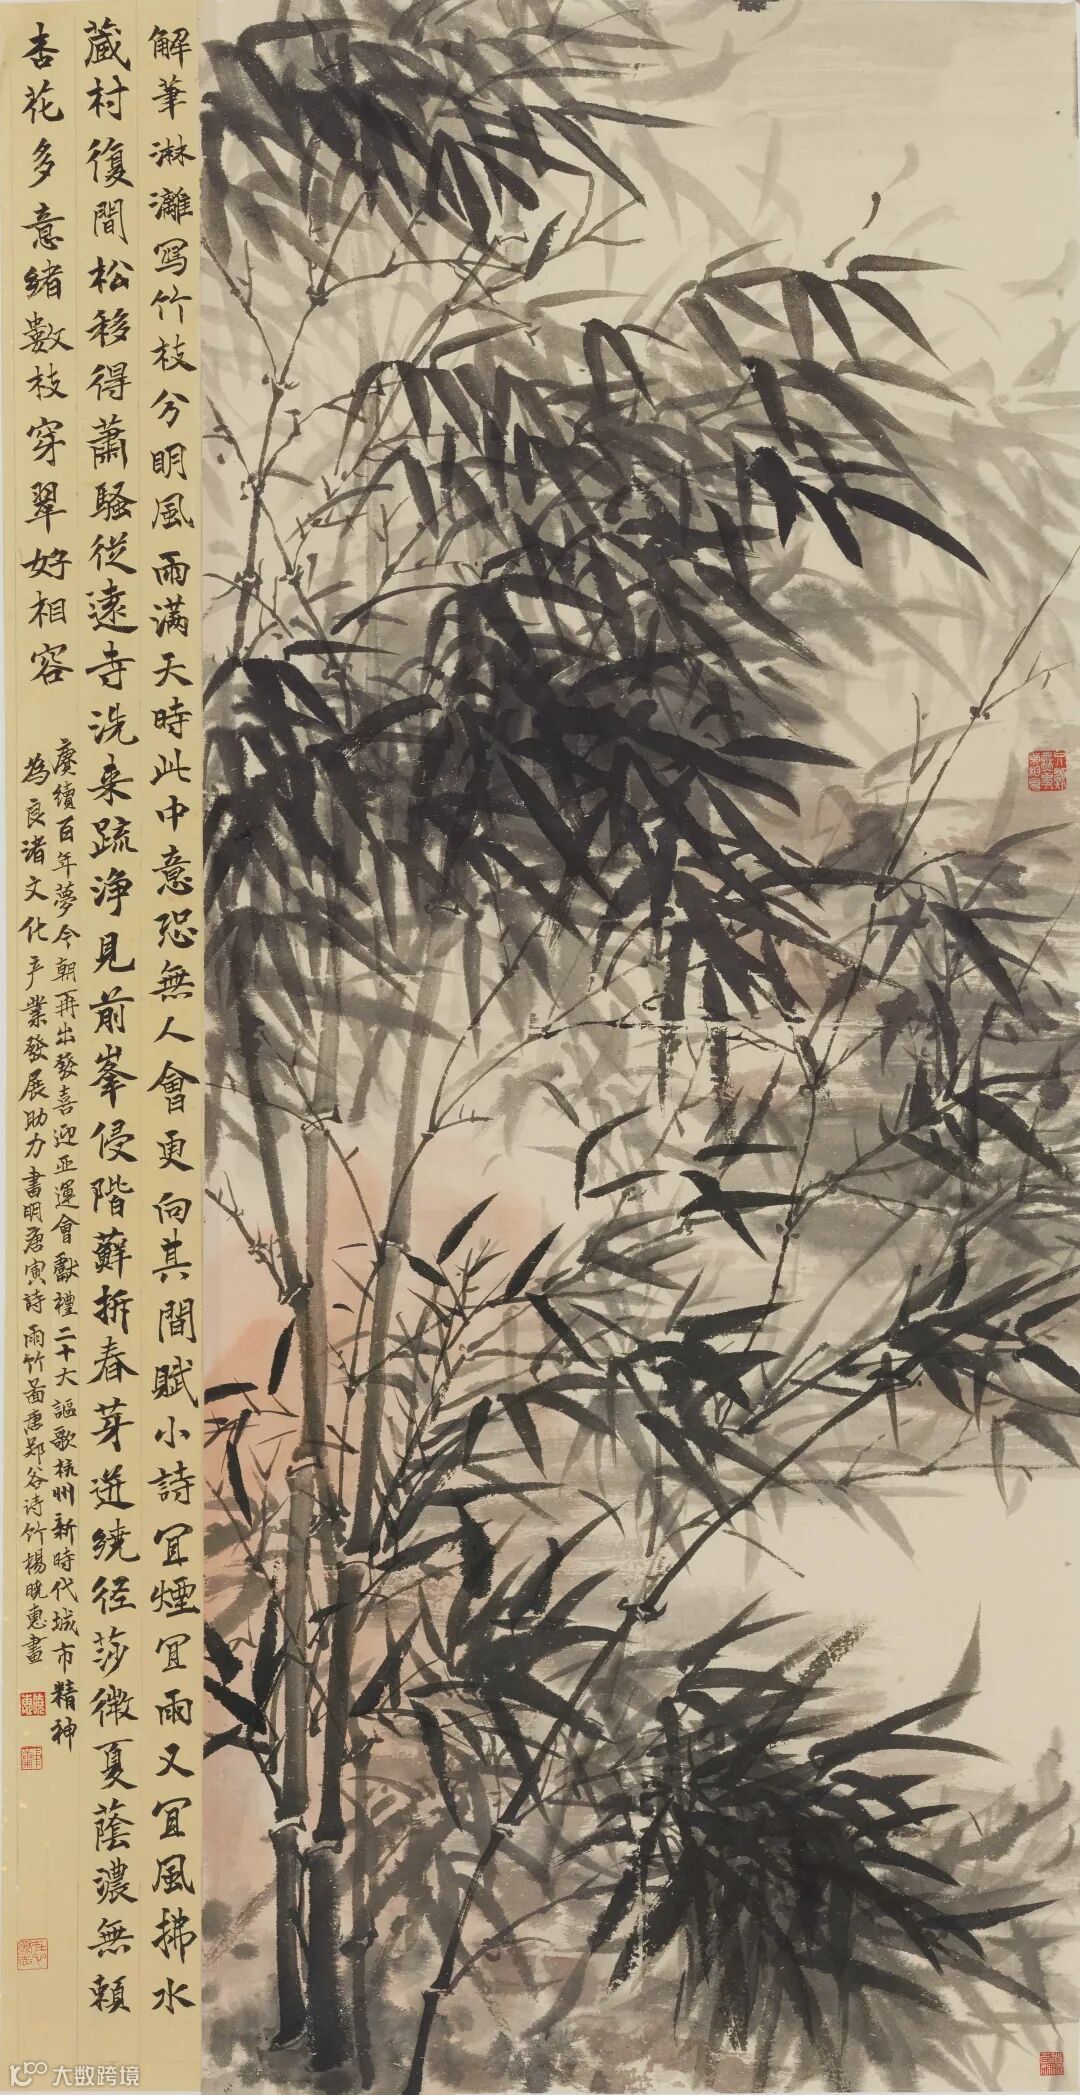 解筆淋漓寫竹枝分明風雨滿天時此中意恐無人會更向其間賦小詩宜煙宜雨又宜風拂水
藏村復間松移得蕭騷從遠寺洗來疏淨見前峯侵階蘚拆春芽迸繞徑莎微夏蔭濃無賴
杏花多意緒數枝穿翠好相容
賡續百年夢今朝再出發喜迎亞運會獻禮二十大謳歌杭州新時代城市精神
為良渚文化产業發展助力書明唐寅詩雨竹圖唐郑谷诗竹楊曉惠畫
大数跨境